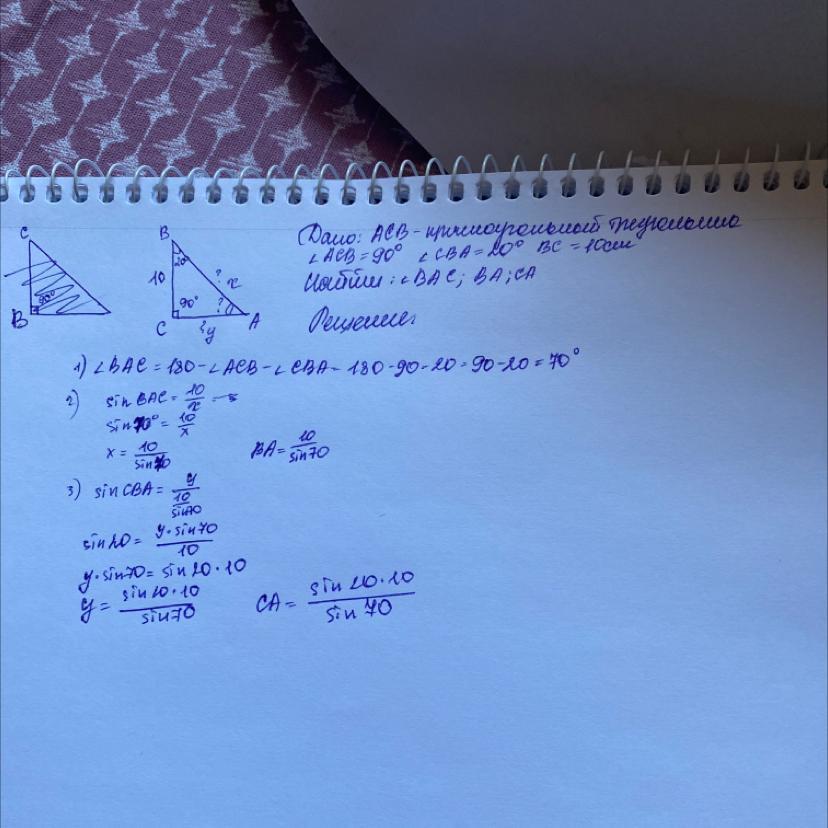 C
B 90°
B
20°
10 ? x
90° ?
C ? y A
Дано: ACB - прямоугольный треугольник
∠ACB = 90° ∠CBA = 20° BC = 10см
Найти: ∠BAC; BA; CA
Решение:
1) ∠BAC = 180 - ∠ACB - ∠CBA = 180 - 90 - 20 = 90 - 20 = 70°
2) sin BAC = 10/x
sin 70° = 10/x
x = 10/sin70 BA = 10/sin70
3) sin CBA = y/(10/sin70)
sin 20 = y·sin70/10
y·sin70 = sin 20·10
y = sin20·10/sin70 CA = sin20·10/sin70